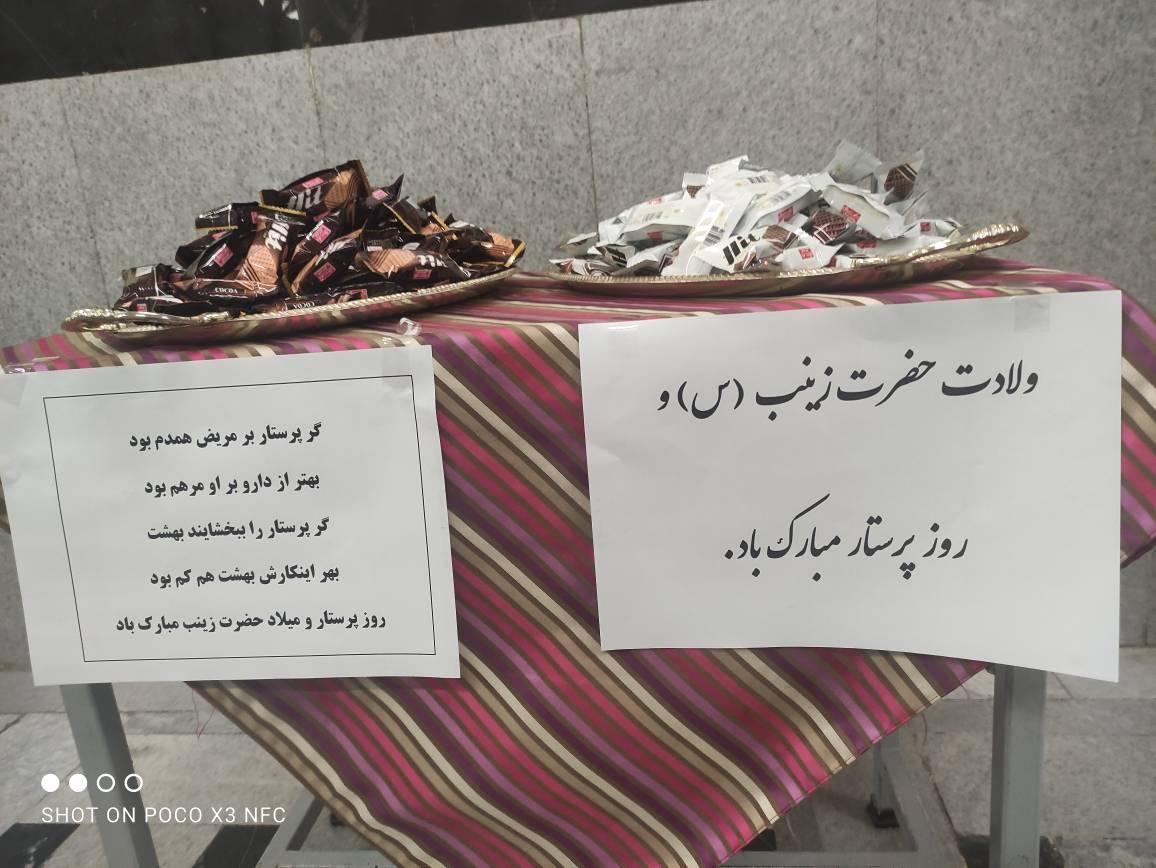 ولادت حضرت زینب (س) و
روز پرستار مبارک باد.
گر پرستار بر مریض همدم بود
بهتر از دارو بر او مرهم بود
گر پرستار را ببخشایند بهشت
بهر اینکارش بهشت هم کم بود
روز پرستار و میلاد حضرت زینب مبارک باد
COCOA
SHOT ON POCO X3 NFC